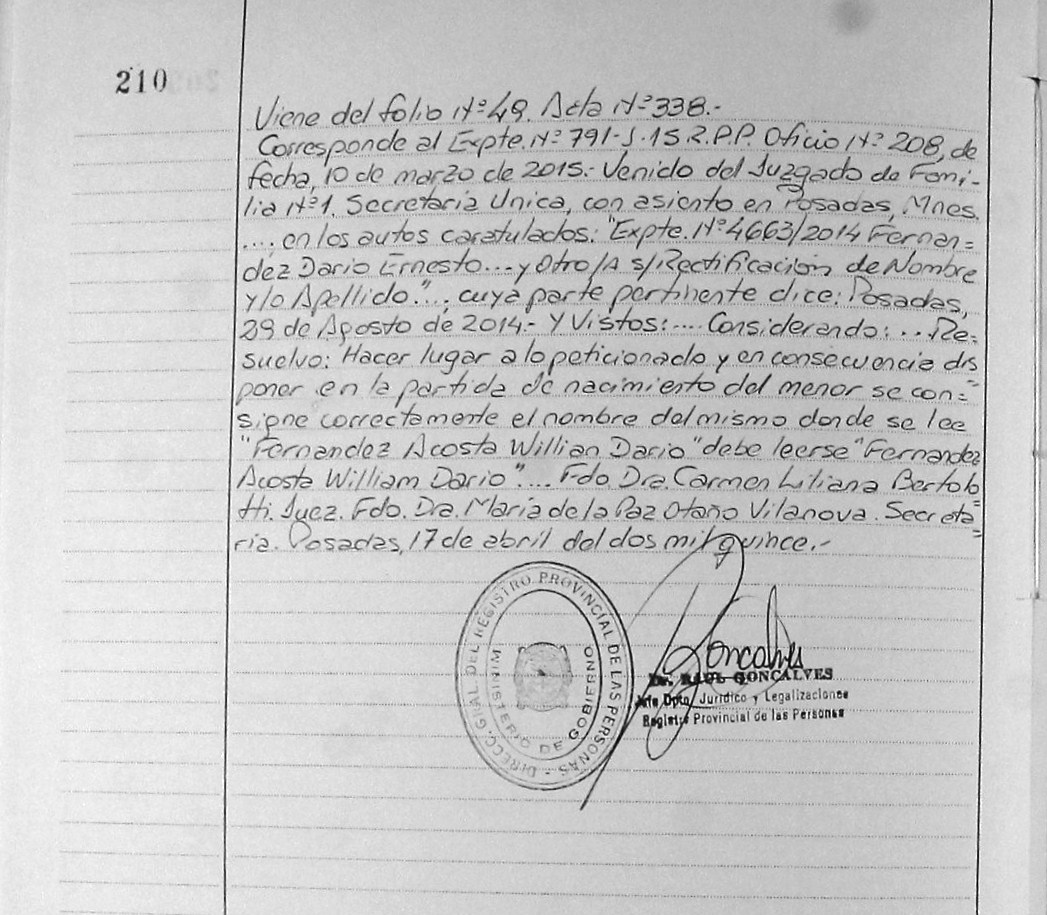 210
Viene del folio Nº 49. Acta Nº 338.-
Corresponde al Expte. Nº 791-J-15 R.P.P. Oficio Nº 208, de
fecha, 10 de marzo de 2015.- Venido del Juzgado de Fami-
lia Nº1, Secretaria Unica, con asiento en Posadas, Mnes.
.... en los autos caratulados: "Expte. Nº 4663/2014 Fernan=
dez Dario Ernesto... y Otro/A s/Rectificación de Nombre
y/o Apellido."..., cuya parte pertinente dice: Posadas,
29 de Agosto de 2014.- Y Vistos:.... Considerando:... Re=
suelvo: Hacer lugar a lo peticionado y en consecuencia dis
poner en la partida de nacimiento del menor se con=
signe correctamente el nombre del mismo donde se lee
"Fernandez Acosta Willian Dario" debe leerse "Fernandez
Acosta William Dario".... Fdo. Dra. Carmen Liliana Bertolo
tti. Juez. Fdo. Dra. Maria de la Paz Otaño Vilanova. Secreta=
ria. Posadas, 17 de abril del dos mil quince.-
DIRECC. GRAL. DEL REGISTRO PROVINCIAL DE LAS PERSONAS -
MINISTERIO DE GOBIERNO
Goncalves
Dr. RAUL GONCALVES
Jefe Dpto. Jurídico y Legalizaciones
Registro Provincial de las Personas